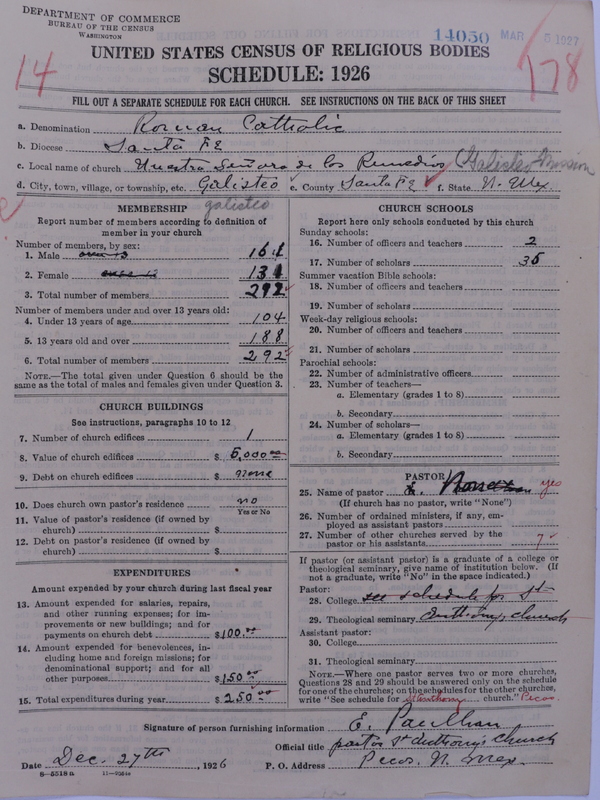 DEPARTMENT OF COMMERCE
BUREAU OF THE CENSUS
WASHINGTON
14050 MAR 5 1927
UNITED STATES CENSUS OF RELIGIOUS BODIES
14 SCHEDULE: 1926 178
FILL OUT A SEPARATE SCHEDULE FOR EACH CHURCH. SEE INSTRUCTIONS ON THE BACK OF THIS SHEET
a. Denomination Roman Catholic
b. Diocese Santa Fe
c. Local name of church Nuestra Señora de los Remedios (Galisteo Mission
d. City, town, village, or township, etc. Galisteo e. County Santa Fe f. State N. Mex.
galisteo
MEMBERSHIP
Report number of members according to definition of member in your church
Number of members, by sex:
1. Male 161
2. Female 131
3. Total number of members 292
Number of members under and over 13 years old:
4. Under 13 years of age 104
5. 13 years old and over 188
6. Total number of members 292
NOTE.—The total given under Question 6 should be the same as the total of males and females given under Question 3.
CHURCH BUILDINGS
See instructions, paragraphs 10 to 12
7. Number of church edifices 1
8. Value of church edifices $ 5,000.00
9. Debt on church edifices $ none
10. Does church own pastor's residence no
Yes or No
11. Value of pastor's residence (if owned by church) $
12. Debt on pastor's residence (if owned by church) $
EXPENDITURES
Amount expended by your church during last fiscal year
13. Amount expended for salaries, repairs, and other running expenses; for improvements or new buildings; and for payments on church debt $100.00
14. Amount expended for benevolences, including home and foreign missions; for denominational support; and for all other purposes $150.00
15. Total expenditures during year $250.00
CHURCH SCHOOLS
Report here only schools conducted by this church
Sunday schools:
16. Number of officers and teachers 2
17. Number of scholars 35
Summer vacation Bible schools:
18. Number of officers and teachers
19. Number of scholars
Week-day religious schools:
20. Number of officers and teachers
21. Number of scholars
Parochial schools:
22. Number of administrative officers
23. Number of teachers—
a. Elementary (grades 1 to 8)
b. Secondary
24. Number of scholars—
a. Elementary (grades 1 to 8)
b. Secondary
PASTOR
25. Name of pastor yes
(If church has no pastor, write "None")
26. Number of ordained ministers, if any, employed as assistant pastors
27. Number of other churches served by the pastor or his assistants 7
If pastor (or assistant pastor) is a graduate of a college or theological seminary, give name of institution below. (If not a graduate, write "No" in the space indicated.)
Pastor:
28. College see schedule for St
29. Theological seminary Anthony church
Assistant pastor:
30. College
31. Theological seminary
NOTE.—Where one pastor serves two or more churches, Questions 28 and 29 should be answered only on the schedule for one of the churches; on the schedules for the other churches, write "See schedule for St Anthony church." Pecos.
Signature of person furnishing information E. Paulhan
Official title pastor St Anthony's church
Date Dec. 27th, 1926 P. O. Address Pecos. N. Mex.
8—5518 a